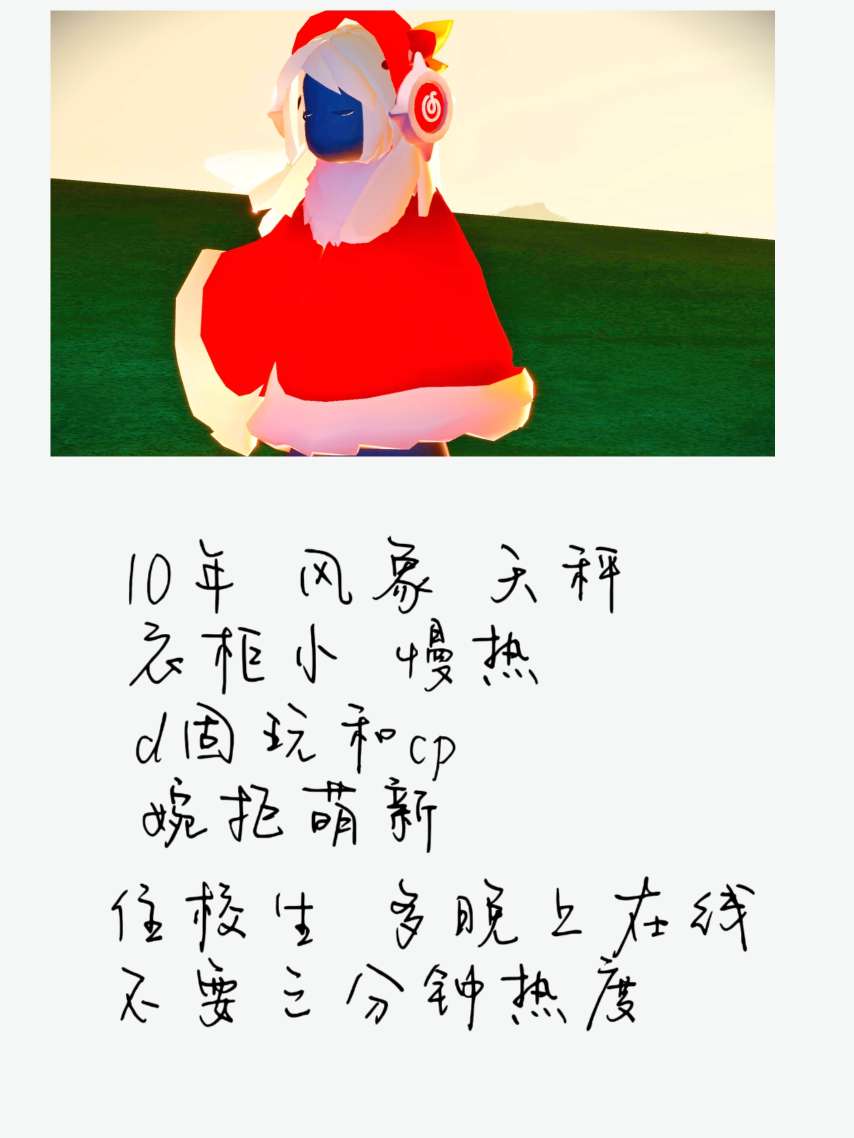 10年 风象 天秤
衣柜小 慢热
d固玩和cp
婉拒萌新
住校生 多晚上在线
不要三分钟热度